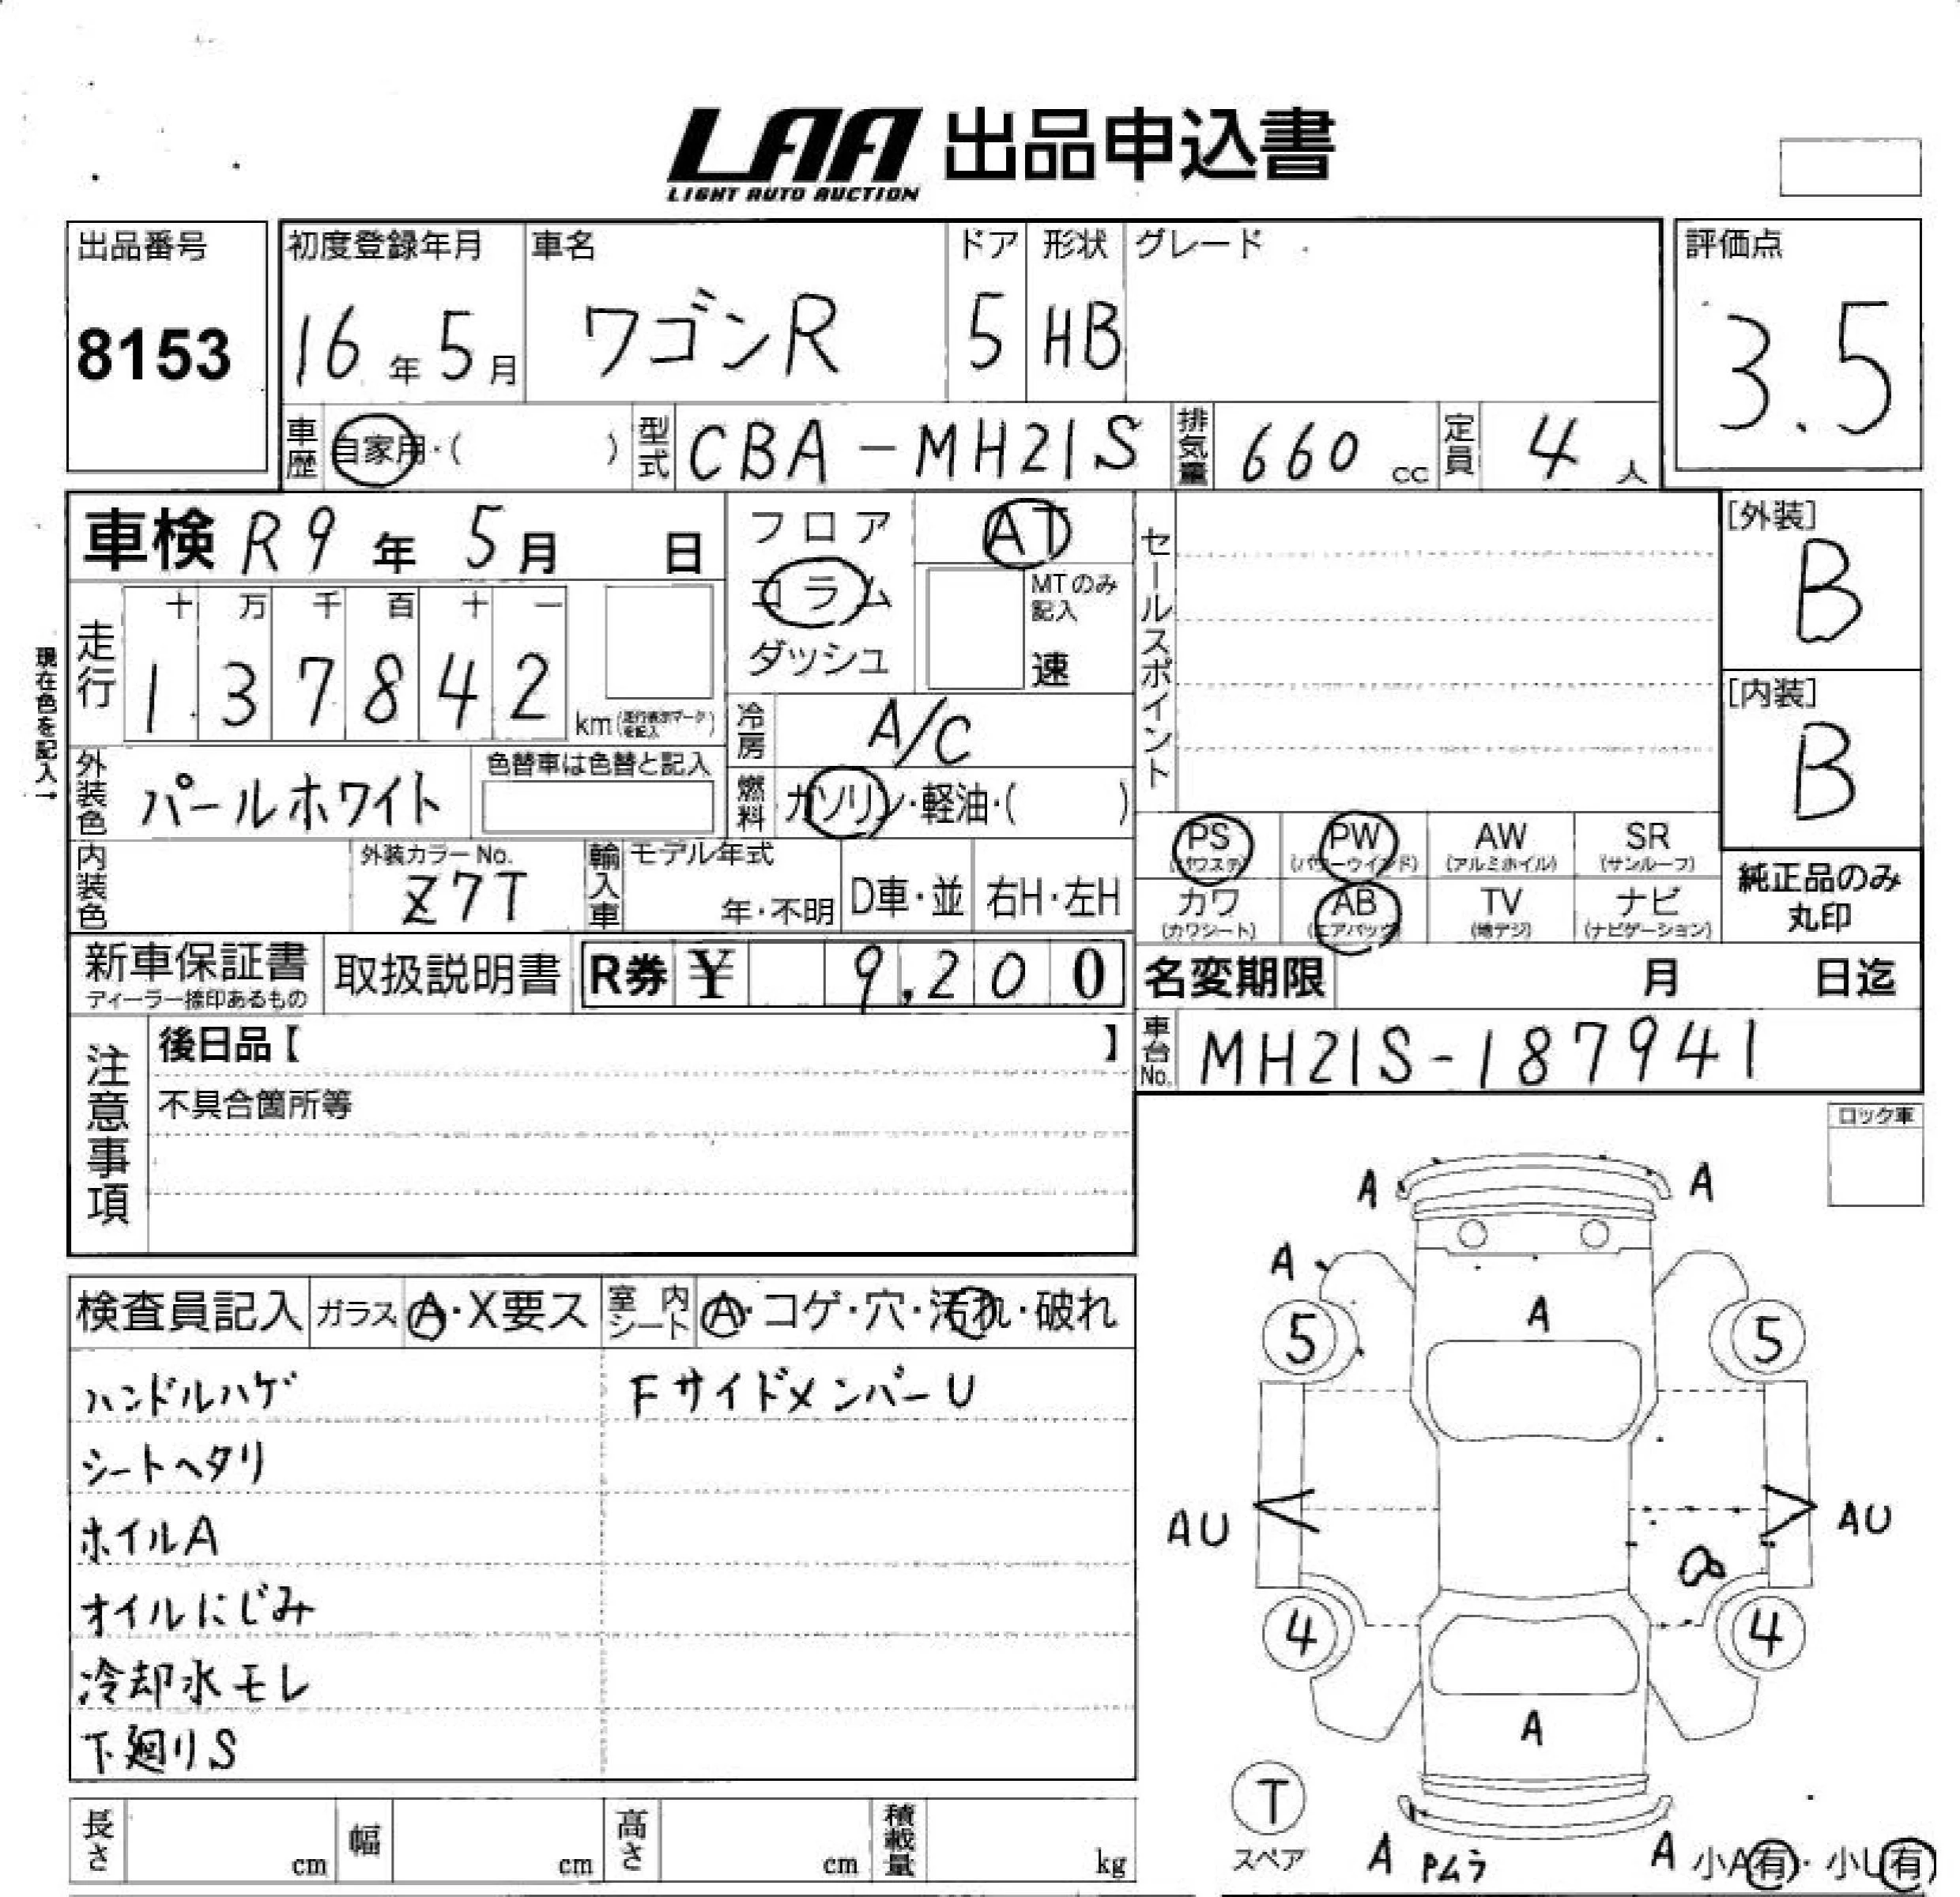 LAA 出品申込書
LIGHT AUTO AUCTION
出品番号
8153
初度登録年月 車名 ドア 形状 グレード
16年5月 ワゴンR 5 HB
評価点
3.5
車歴 自家用・( ) 型式 CBA-MH21S 排気量 660 cc 定員 4人
車検 R9年 5月 日
フロア
コラム
ダッシュ
AT
MTのみ
記入
速
セールスポイント
[外装]
B
[内装]
B
現在色を記入→
走行
十 万 千 百 十 一
1 3 7 8 4 2 km (走行表示マークを記入)
冷房 A/C
外装色 パールホワイト
色替車は色替と記入
燃料 ガソリン・軽油・( )
内装色
外装カラーNo.
Z7T
輸入車 モデル年式
年・不明 D車・並 右H・左H
PS
(パワステ)
PW
(パワーウインド)
AW
(アルミホイル)
SR
(サンルーフ)
カワ
(カワシート)
AB
(エアバック)
TV
(地デジ)
ナビ
(ナビゲーション)
純正品のみ
丸印
新車保証書
ディーラー捺印あるもの
取扱説明書
R券 ¥ 9,200
名変期限 月 日迄
車台No. MH21S-187941
注意事項
後日品【 】
不具合箇所等
ロック車
検査員記入 ガラス A・X要ス 室内シート A・コゲ・穴・汚れ・破れ
ハンドルハゲ FサイドメンバーU
シートヘタリ
ホイルA
オイルにじみ
冷却水モレ
下廻りS
A A
A
A
5 5
AU AU
4 4
A
T
スペア
A Pムラ A 小A有・小U有
長さ cm 幅 cm 高さ cm 積載量 kg